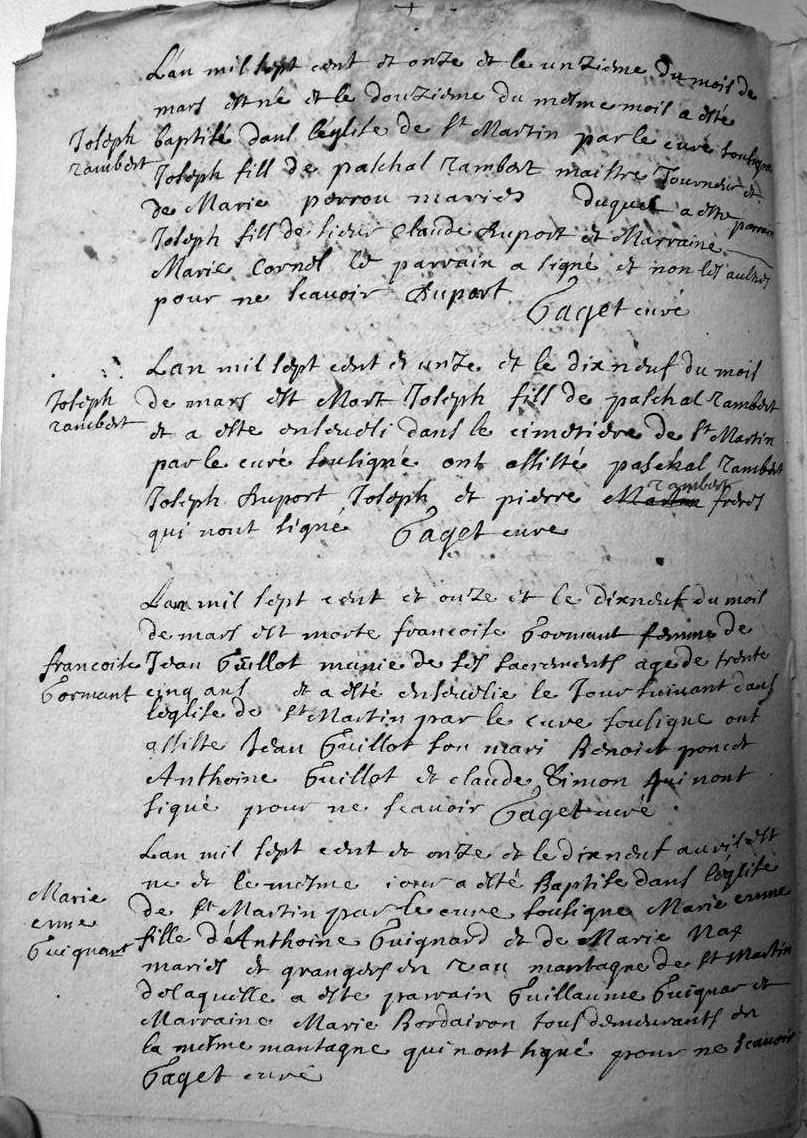 L'an mil sept cent et onze et le unzieme du mois de
mars est né et le douzieme du mesme mois a esté
Joseph
rambert
baptisé dans l'église de St Martin par le curé soussigné
Joseph fill de paschal rambert maistre Tourneur et
de Marie perrou mariés duquel a esté parrain
Joseph fill de sieur Claude Duport et Marraine
Marie Cornet le parrain a signé et non les aultres
pour ne scavoir Duport Gaget curé
Lan mil sept cent et unze et le dixneuf du mois
Joseph
rambert
de mars est Mort Joseph fill de paschal rambert
et a esté enseveli dans le cimetiere de St Martin
par le curé sousigné ont assisté paschal rambert
Joseph Duport Joseph et pierre rambert freres
qui nont signé Gaget cure
Lan mil sept cent et onze et le dixneuf du mois
de mars est morte francoise Gormant femme de
francoise
Gormant
Jean Guillot munie de ses sacrements age de trente
cinq ans et a esté ensevelie le Jour suivant dans
l'eglise de St Martin par le cure sousigne ont
assiste Jean Guillot son mari Benoict poncet
Anthoine Guillot et claude Simon qui nont
signé pour ne scavoir Gaget curé
Lan mil sept cent et onze et le dixneuf auril est
ne et le mesme iour a esté Baptise dans l'église
Marie
enne
Guiguart
de St Martin par le cure sousigne Marie enne
fille d'Anthoine Guignard et de Marie
mariés et grangers en montagne de St Martin
de laquelle a este parrain Guillaume Guignar et
Marraine Marie Bordairon tous demeurants en
la mesme montagne qui nont signé pour ne scavoir
Gaget curé